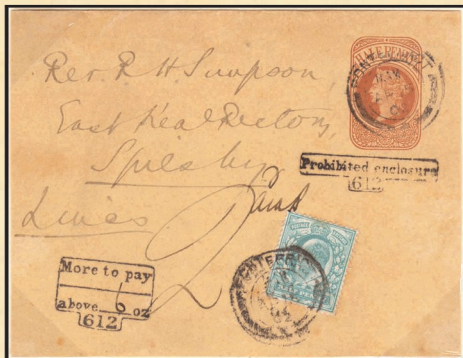 HALFPENNY
Rev. R H Simpson,
East Keal Rectory,
Spilsby
Lincs
Prohibited enclosure
612
More to pay
above 0 oz
612